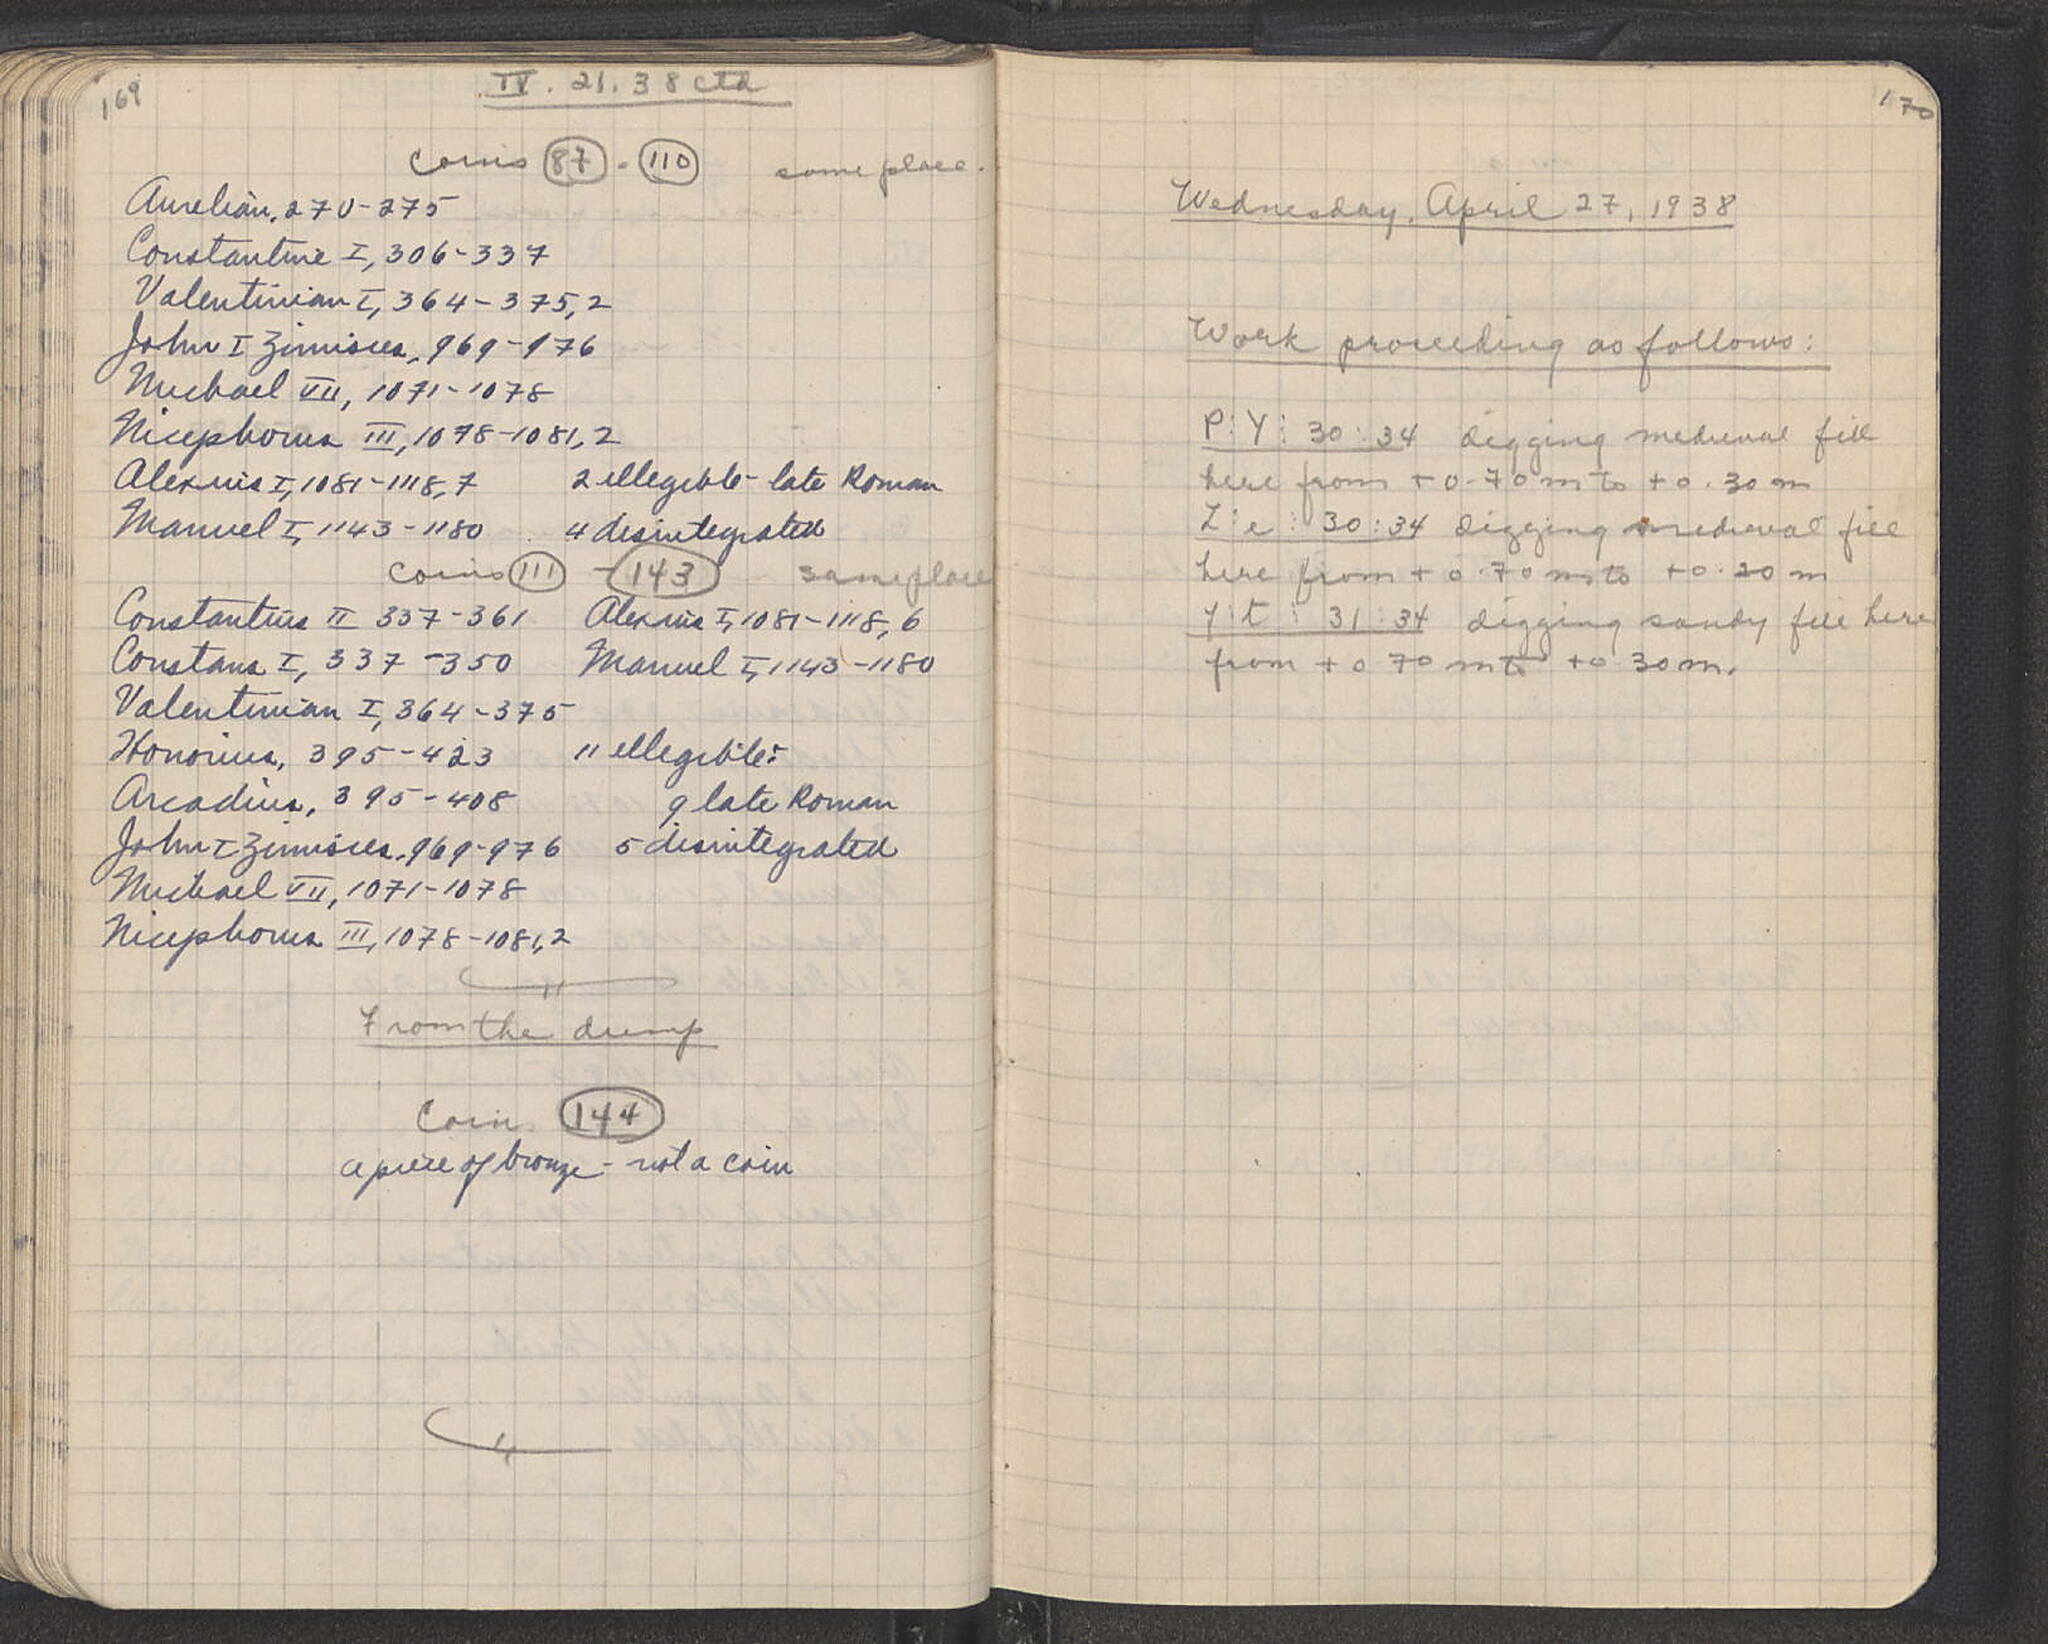 169
IV. 21. 38 ctd
coins 87 - 110 same place.
Aurelian, 270-275
Constantine I, 306-337
Valentinian I, 364-375, 2
John I Zimisces, 969-976
Michael VII, 1071-1078
Nicephorus III, 1078-1081, 2
Alexius I, 1081-1118, 7 2 illegible - late Roman
Manuel I, 1143-1180 4 disintegrated
coins 111 - 143 same place
Constantius II 337-361 Alexius I, 1081-1118, 6
Constans I, 337-350 Manuel I, 1143-1180
Valentinian I, 364-375
Honorius, 395-423 11 illegible:
Arcadius, 395-408 9 late Roman
John I Zimisces, 969-976 5 disintegrated
Michael VII, 1071-1078
Nicephorus III, 1078-1081, 2
From the dump
Coin 144
a piece of bronze - not a coin
170
Wednesday, April 27, 1938
Work proceeding as follows:
P:Y: 30:34 digging medieval fill
here from +0.70m to +0.30m
Z:e: 30:34 digging medieval fill
here from +0.70m to +0.20m
y:t: 31:34 digging sandy fill here
from +0.70m to +0.30m.